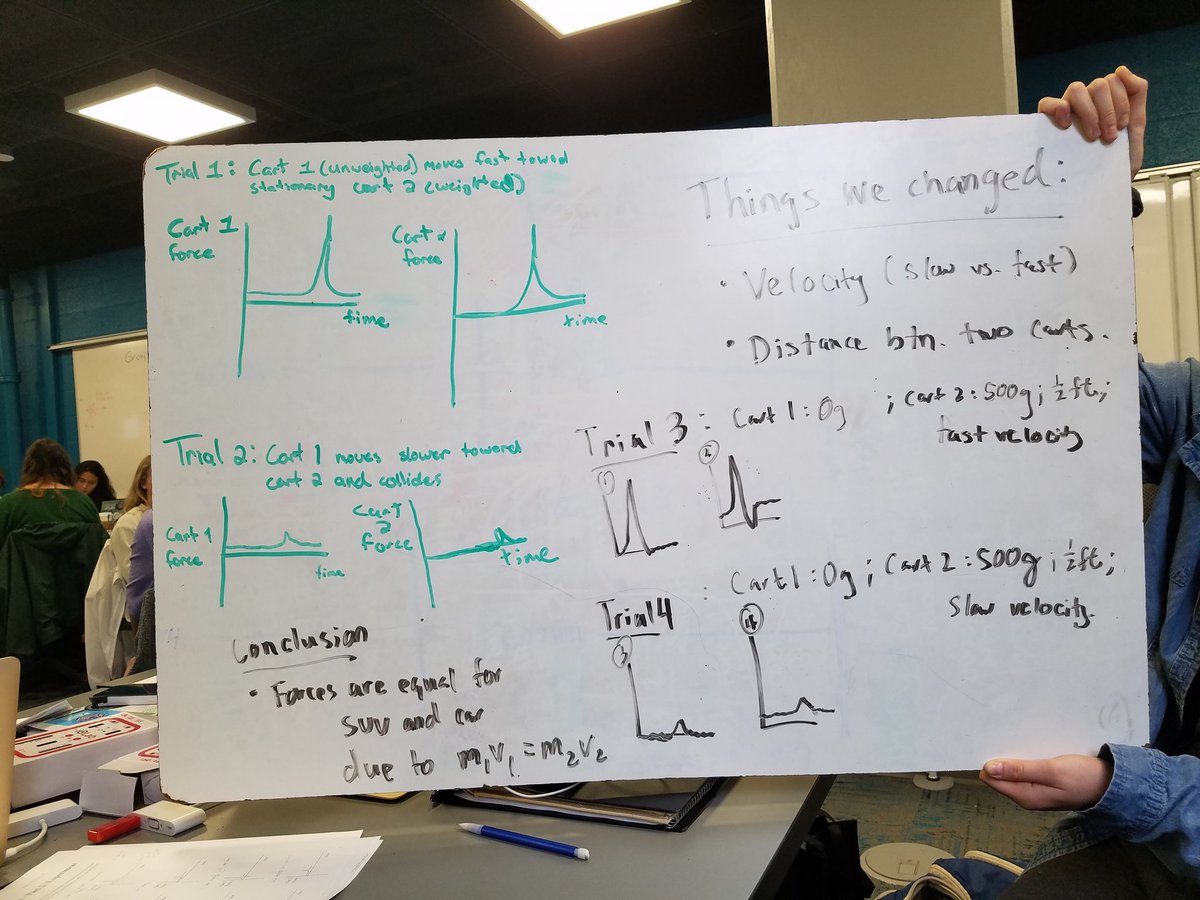 Trial 1: Cart 1 (unweighted) moves fast toward
stationary cart 2 (weighted)
Cart 1
force
time
Cart 2
force
time
Trial 2: Cart 1 moves slower toward
cart 2 and collides
Cart 1
force
time
Cart
2
force
time
Conclusion
• Forces are equal for
SUV and car
due to m₁v₁ = m₂v₂
Things we changed:
• Velocity (slow vs. fast)
• Distance btn. two carts.
Trial 3 : Cart 1 : 0g ; Cart 2 : 500g ; ½ ft ;
fast velocity
1
2
Trial 4 : Cart 1 : 0g ; Cart 2 : 500g ; ½ ft ;
Slow velocity.
3